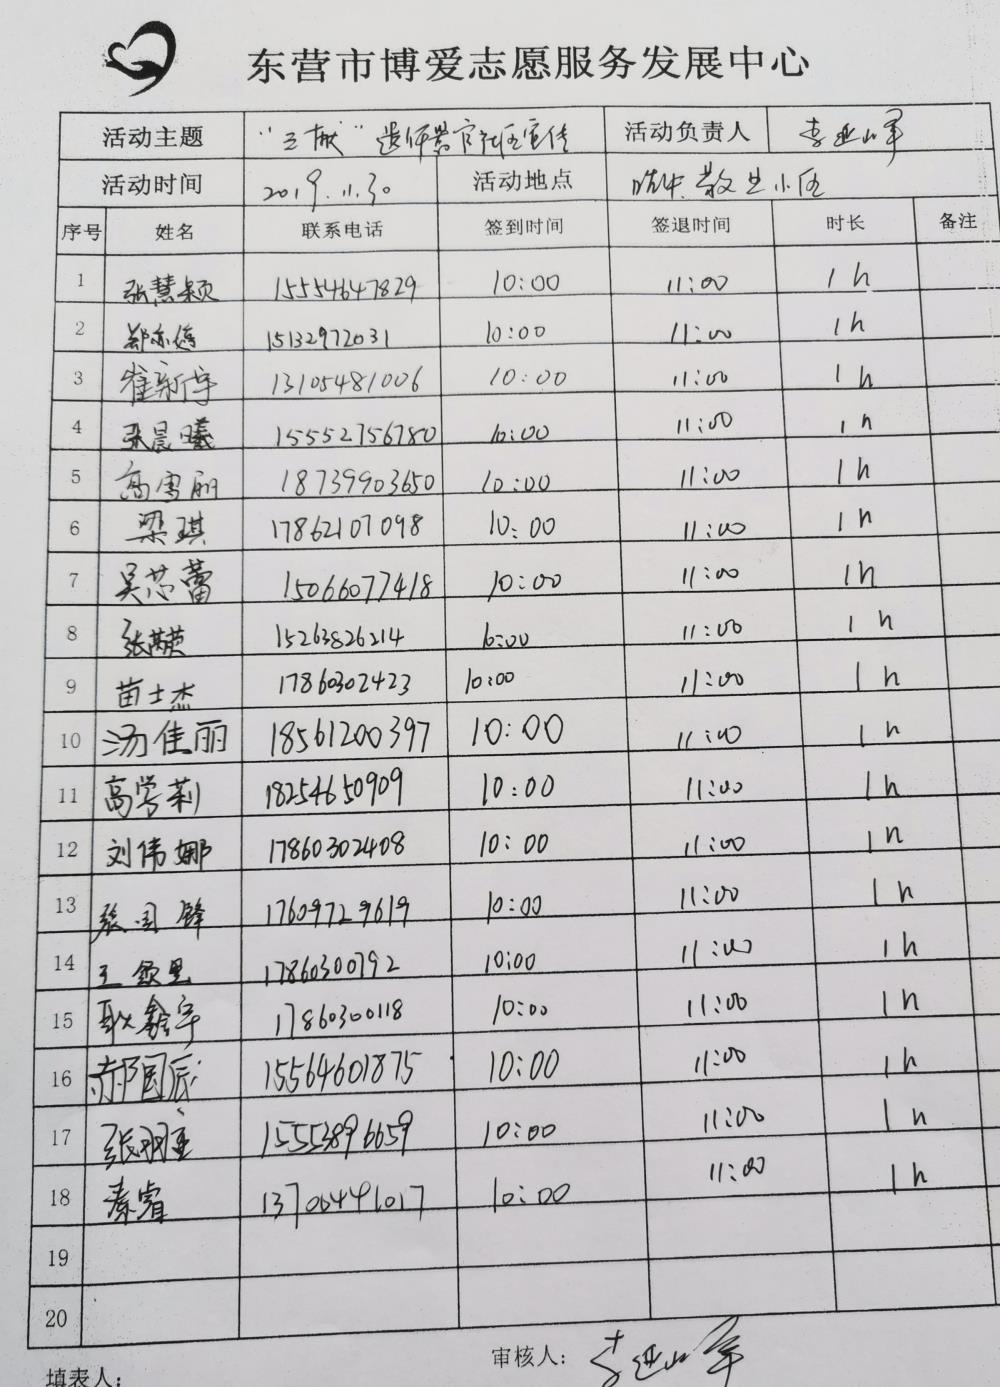 东营市博爱志愿服务发展中心
活动主题 “三献”遗体器官社区宣传 活动负责人 李延军
活动时间 2019.11.30 活动地点 小区
序号 姓名 联系电话 签到时间 签退时间 时长 备注
1 张慧颖 15554647829 10:00 11:00 1h
2 郑亦婷 15132972031 10:00 11:00 1h
3 崔新宇 13105481006 10:00 11:00 1h
4 张晨曦 15552756780 10:00 11:00 1h
5 高雪丽 18739903650 10:00 11:00 1h
6 梁琪 17862107098 10:00 11:00 1h
7 吴芯蕾 15066077418 10:00 11:00 1h
8 张 15263826214 10:00 11:00 1h
9 苗士杰 17860302423 10:00 11:00 1h
10 汤佳丽 18561200397 10:00 11:00 1h
11 高学莉 18254650909 10:00 11:00 1h
12 刘伟娜 17860302408 10:00 11:00 1h
13 张国锋 17609729619 10:00 11:00 1h
14 王 17860300792 10:00 11:00 1h
15 耿鑫宇 17860300118 10:00 11:00 1h
16 郝国辰 15564601875 10:00 11:00 1h
17 张 15553896659 10:00 11:00 1h
18 秦睿 13706441017 10:00 11:00 1h
19
20
填表人： 审核人：